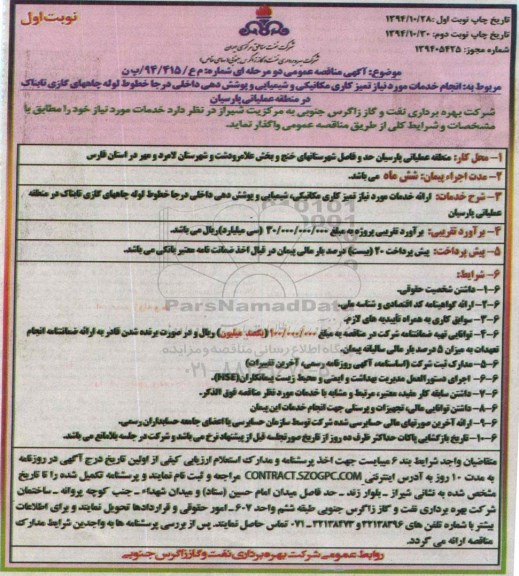 تاریخ چاپ نوبت اول :۱۳۹۴/۱۰/۲۸
تاریخ چاپ نوبت دوم: ۱۳۹۴/۱۰/۳۰
شماره مجوز: ۱۳۹۴۰۵۴۲۵
نوبت اول
شرکت نفت مناطق مرکزی ایران
شرکت بهره برداری نفت و گاز زاگرس جنوبی (سهامی خاص)
موضوع: آگهی مناقصه عمومی دو مرحله ای شماره: م ع / ۹۴/۴۱۵/ب ن
مربوط به: انجام خدمات مورد نیاز تمیز کاری مکانیکی و شیمیایی و پوشش دهی داخلی درجا خطوط لوله چاههای گازی تابناک
در منطقه عملیاتی پارسیان
شرکت بهره برداری نفت و گاز زاگرس جنوبی به مرکزیت شیراز در نظر دارد خدمات مورد نیاز خود را مطابق با
مشخصات و شرایط کلی از طریق مناقصه عمومی واگذار نماید.
۱- محل کار: منطقه عملیاتی پارسیان حد و فاصل شهرستانهای خنج و بخش علامرودشت و شهرستان لامرد و مهر در استان فارس
۲- مدت اجراء پیمان: شش ماه می باشد.
۳- شرح خدمات: ارائه خدمات مورد نیاز تمیز کاری مکانیکی، شیمیایی و پوشش دهی داخلی درجا خطوط لوله چاههای گازی تابناک در منطقه
عملیاتی پارسیان
۴- برآورد تقریبی: برآورد تقریبی پروژه به مبلغ ۳۰/۰۰۰/۰۰۰/۰۰۰ (سی میلیارد)ریال می باشد.
۵- پیش پرداخت: پیش پرداخت ۲۰ (بیست) درصد بار مالی پیمان در قبال اخذ ضمانت نامه معتبر بانکی می باشد.
۶- شرایط:
۱-۶- داشتن شخصیت حقوقی.
۲-۶- ارائه گواهینامه کد اقتصادی و شناسه ملی.
۳-۶- سوابق کاری به همراه تأییدیه های لازم.
۴-۶- توانایی تهیه ضمانتنامه شرکت در مناقصه به مبلغ ۱۰۰/۰۰۰/۰۰۰(یکصد میلیون) ریال و در صورت برنده شدن قادر به ارائه ضمانتنامه انجام
تعهدات به میزان ۵ درصد بار مالی سالیانه پیمان.
۵-۶- مدارک ثبت شرکت (اساسنامه، آگهی روزنامه رسمی، آخرین تغییرات)
۶-۶- اجرای دستورالعمل مدیریت بهداشت و ایمنی و محیط زیست پیمانکاران(HSE).
۷-۶- داشتن سابقه کار مفید، معتبر، مرتبط و مشابه با خدمات مورد نظر مناقصه فوق الذکر.
۸-۶- داشتن توانایی مالی، تجهیزات و پرسنلی جهت انجام خدمات این پیمان
۹-۶- ارائه آخرین صورتهای مالی حسابرسی شده شرکت توسط سازمان حسابرسی یا اعضای جامعه حسابداران رسمی.
۱۰-۶- تاریخ بازگشایی پاکات حداکثر ظرف ده روز از تاریخ صورتجلسه قبل از پیشنهاد نرخ می باشد و شرکت در جلسه بلامانع می باشد.
متقاضیان واجد شرایط بند ۶ میبایست جهت اخذ پرسشنامه و مدارک استعلام ارزیابی کیفی از اولین تاریخ درج آگهی در روزنامه
به مدت ۱۰ روز به آدرس اینترنتی CONTRACT.SZOGPC.COM مراجعه و ثبت نام نمایند و پرسشنامه تکمیل شده را تا تاریخ
مشخص شده به نشانی شیراز ـ بلوار زند ـ حد فاصل میدان امام حسین (ستاد) و میدان شهداء ـ جنب کوچه پروانه ـ ساختمان
شرکت بهره برداری نفت و گاز زاگرس جنوبی طبقه ششم واحد ۶۰۷ـ امور حقوقی و قراردادها تحویل نمایند و برای اطلاعات
بیشتر با شماره تلفن های ۳۲۱۳۸۳۹۶ و ۳۲۱۳۸۴۷۳ـ۰۷۱ تماس حاصل نمایند. پس از بررسی پرسشنامه ها به واجدین شرایط مدارک
مناقصه ارائه می گردد.
روابط عمومی شرکت بهره برداری نفت و گاز زاگرس جنوبی
ParsNamadData